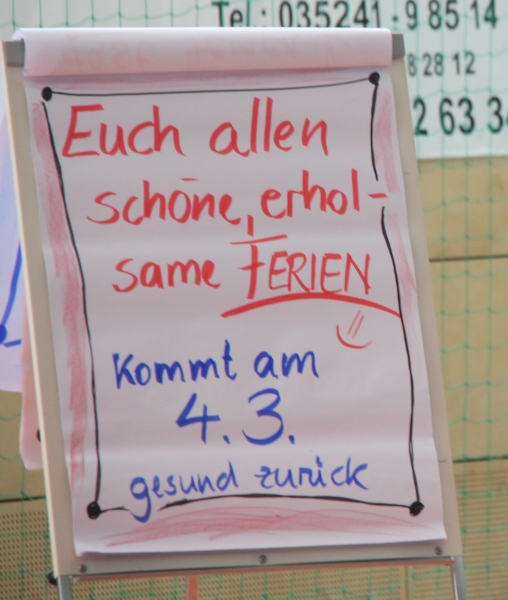 Tel.: 035241 - 9 85 14
8 28 12
2 63 34
Euch allen
schöne, erhol-
same FERIEN
Kommt am
4.3.
gesund zurück